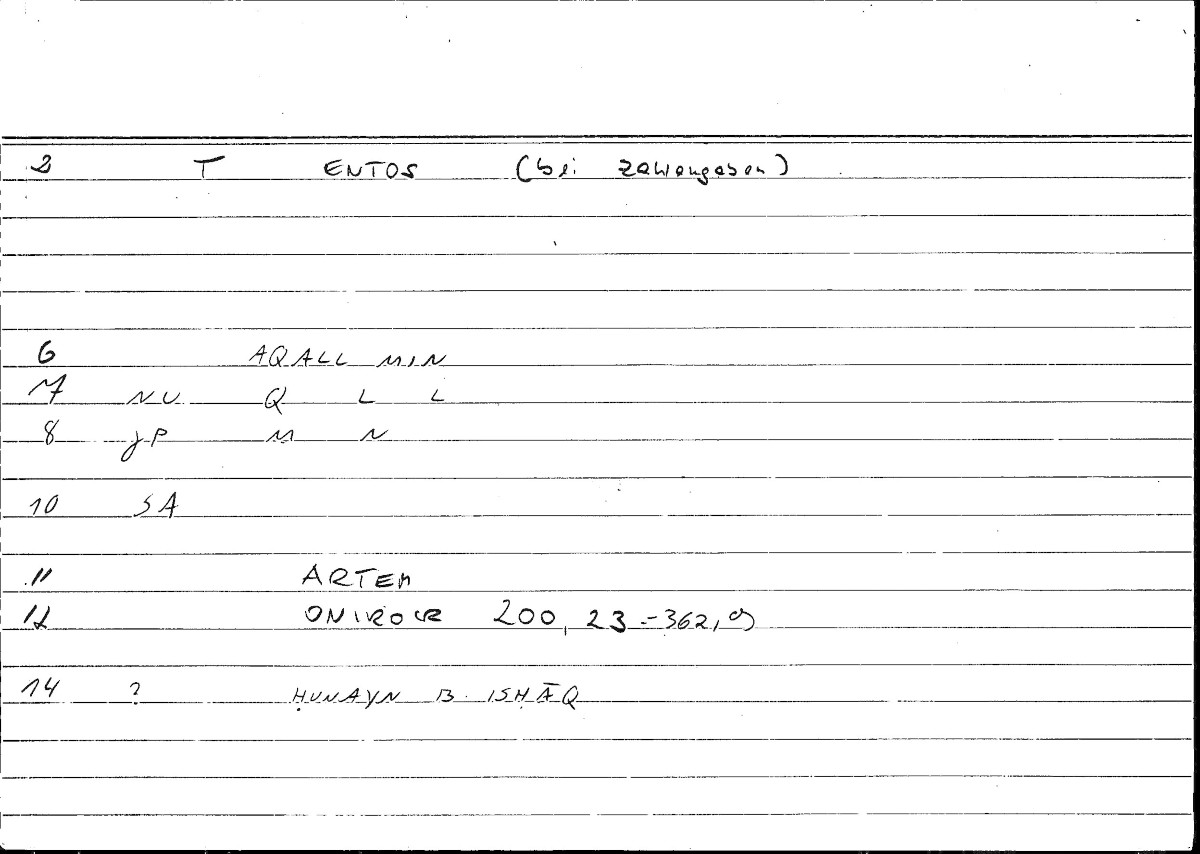 2 T ENTOS (bei Zahlangaben)
6 AQALL MIN
7 NU Q L L
8 JP M N
10 SA
11 ARTEM
12 ONIROCR 200, 23 - 362, 9
14 ? ḤUNAYN B. ISḤĀQ